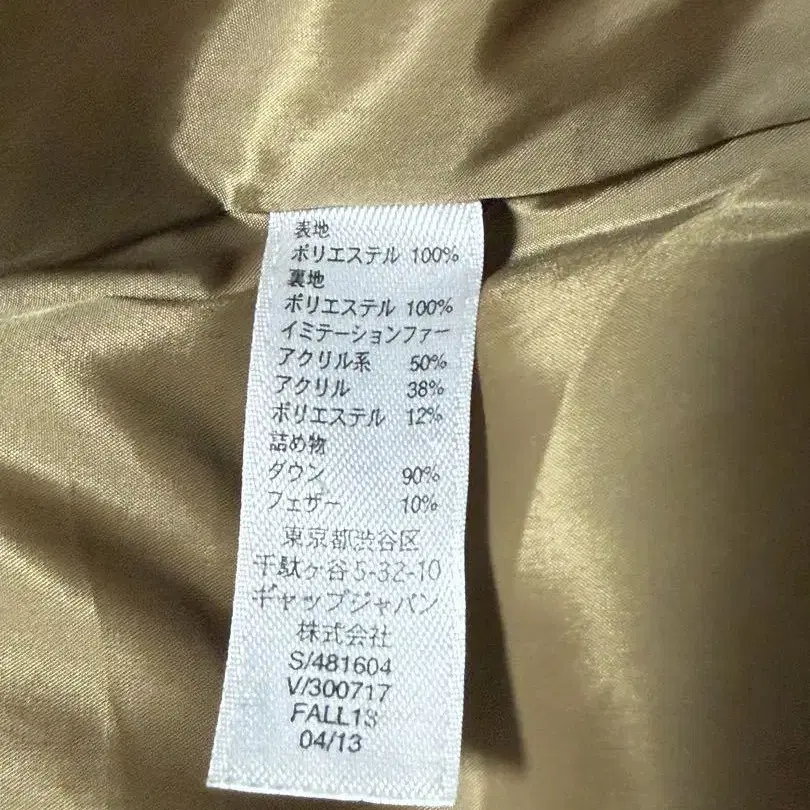 表地
ポリエステル 100%
裏地
ポリエステル 100%
イミテーションファー
アクリル系 50%
アクリル 38%
ポリエステル 12%
詰め物
ダウン 90%
フェザー 10%
東京都渋谷区
千駄ヶ谷5-32-10
ギャップジャパン
株式会社
S/481604
V/300717
FALL13
04/13